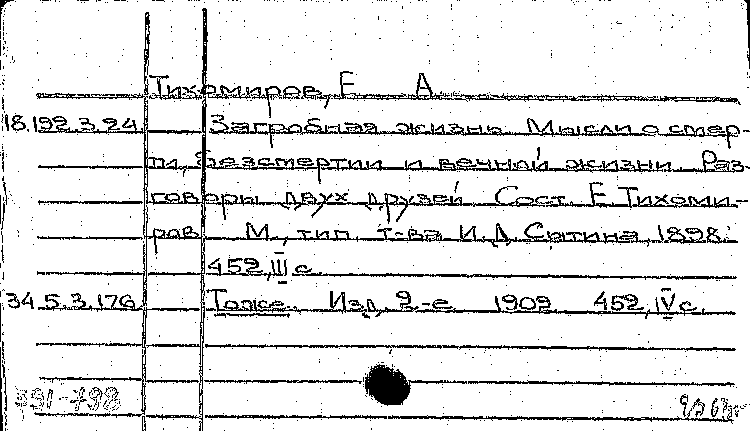 Тихомиров, Е. А.
18.192.3.24. Загробная жизнь. Мысли о смер-
ти, безсмертии и вечной жизни. Раз-
говоры двух друзей. Сост. Е. Тихоми-
ров. М., тип. т-ва И.Д. Сытина, 1898.
452, III с.
34.5.3.176. Тоже. Изд. 2-е. 1902. 452, IV с.
591-798